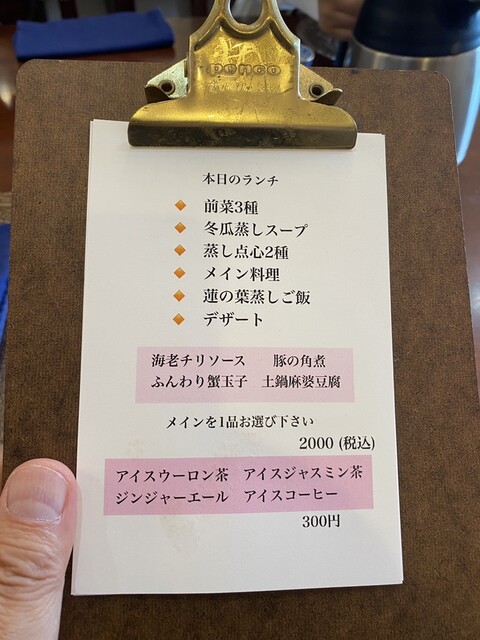 penco
本日のランチ
🔸 前菜3種
🔸 冬瓜蒸しスープ
🔸 蒸し点心2種
🔸 メイン料理
🔸 蓮の葉蒸しご飯
🔸 デザート
海老チリソース　豚の角煮
ふんわり蟹玉子　土鍋麻婆豆腐
メインを1品お選び下さい
2000 (税込)
アイスウーロン茶　アイスジャスミン茶
ジンジャーエール　アイスコーヒー
300円